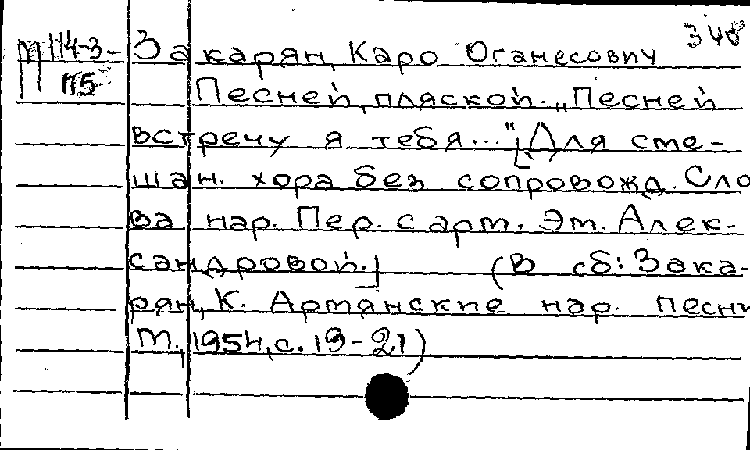 340
П 114-3- Закарян, Каро Оганесович
115 Песней, пляской. „Песней
встречу я тебя..." [Для сме-
шан. хора без сопровожд. Сло
ва нар. Пер. с арт. Эт. Алек-
сандровой.] (В сб: Зака-
рян, К. Артянские нар. песни
М., 1954, с. 19-21)